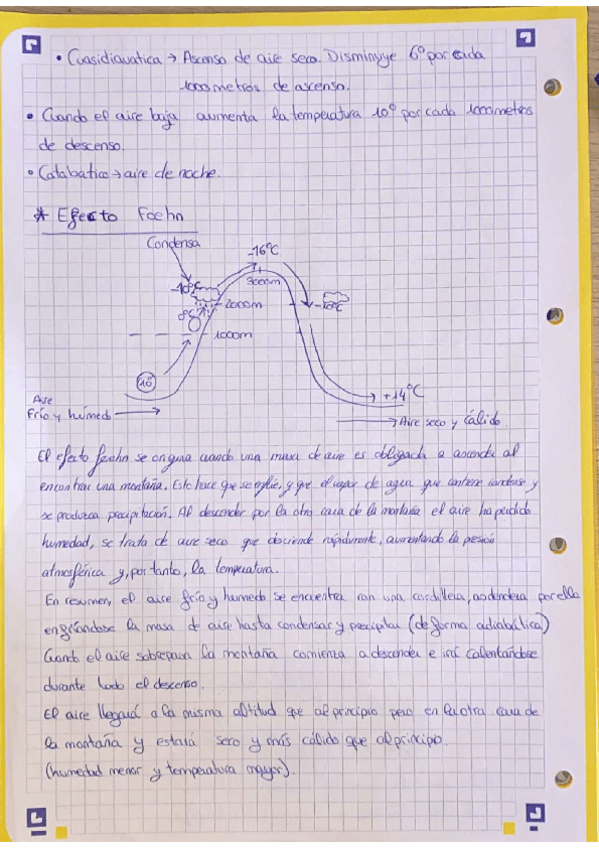 • Cuasidiavatica → Ascenso de aire seco. Disminuye 6º por cada
1000 metros de ascenso.
• Cuando el aire baja aumenta la temperatura 10º por cada 1000 metros
de descenso.
• Catabatico → aire de noche.
* Efecto Foehn
Condensa
-16ºC
3000m
-10ºC
2000m
1000m
+14ºC
Aire
Frío y húmedo
Aire seco y cálido
El efecto foehn se origina cuando una masa de aire es obligada a ascender al
encontrar una montaña. Esto hace que se enfríe, y que el vapor de agua que contiene condense y
se produzca precipitación. Al descender por la otra cara de la montaña el aire ha perdido
humedad, se trata de aire seco que desciende rapidamente, aumentando la presión
atmosférica y, por tanto, la temperatura.
En resumen, el aire frío y humedo se encuentra con una cordillera, ascendera por ella
enfriándose la masa de aire hasta condensar y precipitar (de forma adiabática)
Cuando el aire sobrepasa la montaña comienza a descender e irá calentándose
durante todo el descenso.
El aire llegará a la misma altitud que al principio pero en la otra cara de
la montaña y estará seco y más cálido que al principio.
(humedad menor y temperatura mayor).